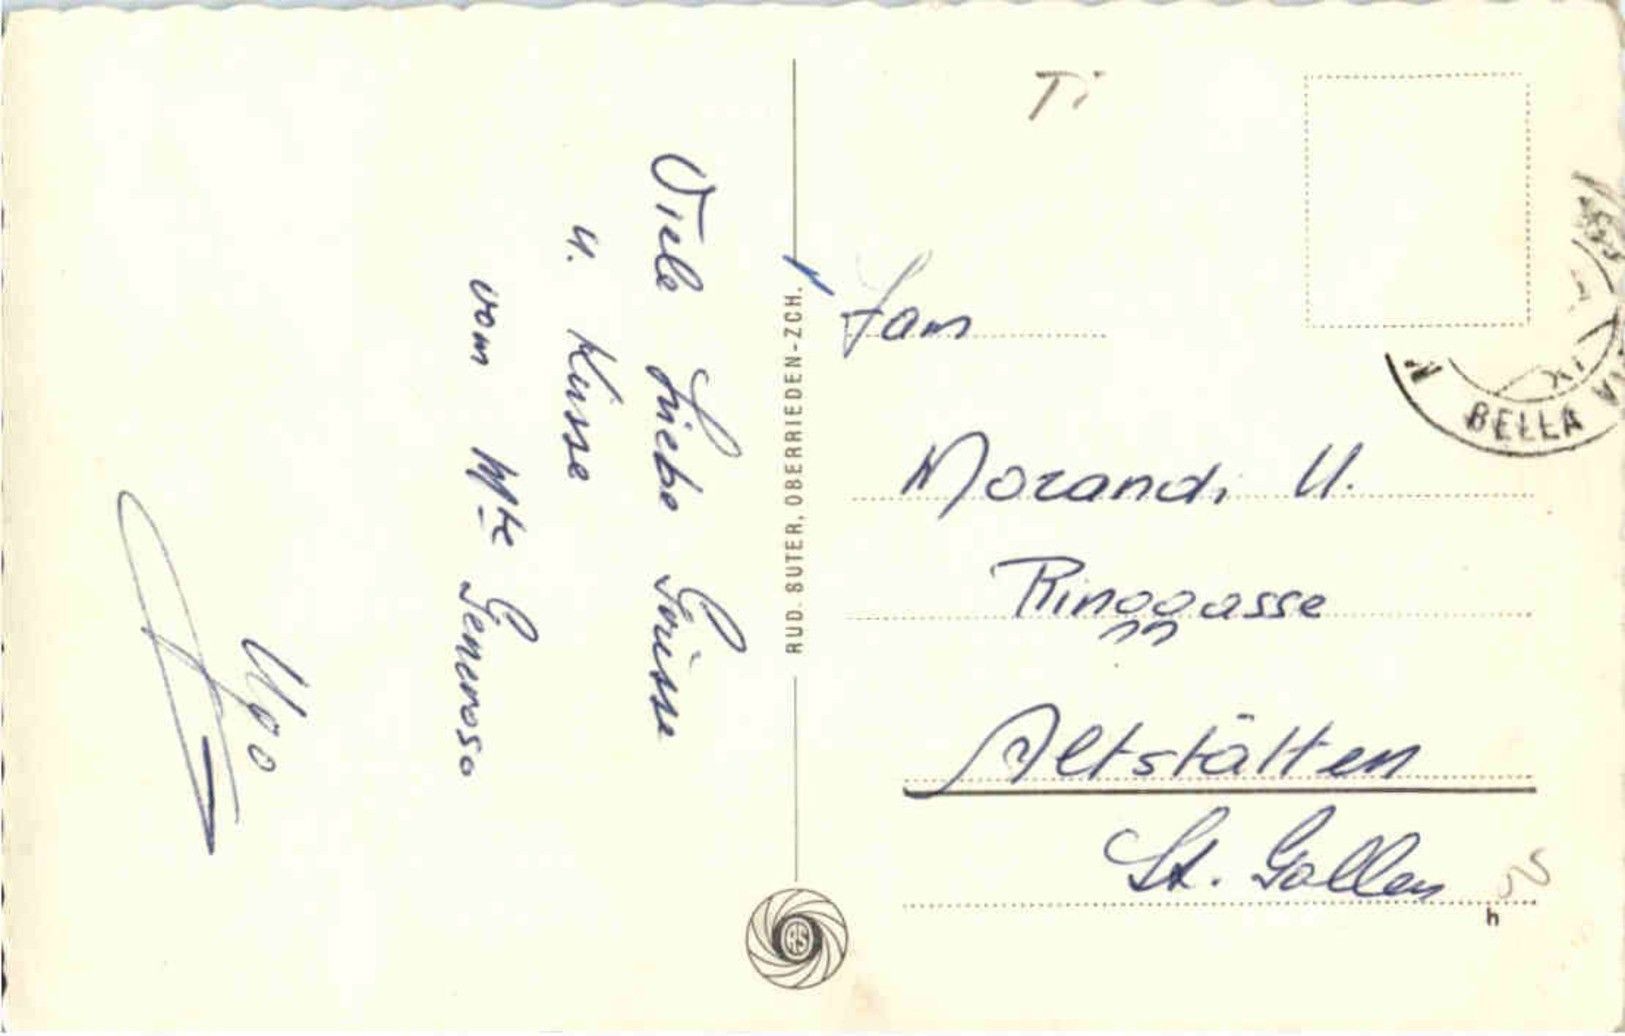 Viele Liebe Grüsse
u. Küsse
vom Mte Generoso
Ugo
RUD. SUTER, OBERRIEDEN-ZCH.
RS
Ti
Fam
Morandi U.
Ringgasse
Altstätten
St. Gallen
h
BELLA